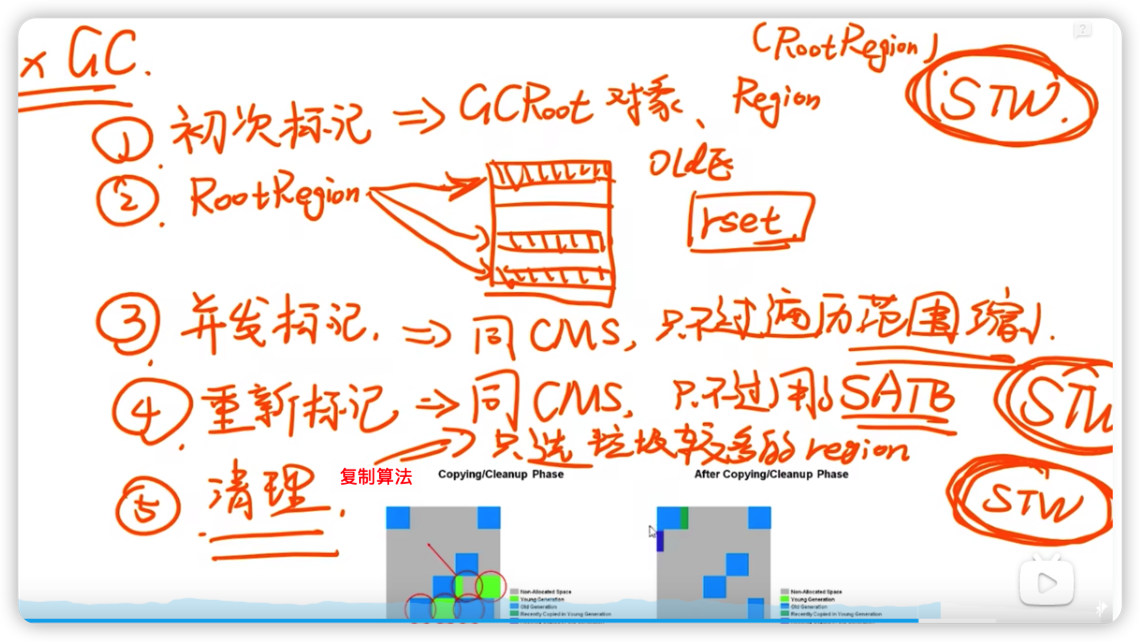 x GC.
(RootRegion)
① 初次标记 => GCRoot 对象、Region
STW.
② RootRegion
Old区
rset
③ 并发标记. => 同CMS, 只不过遍历范围缩小.
④ 重新标记 => 同CMS, 只不过用的SATB
STW
=> 只选垃圾较多的region
⑤ 清理.
复制算法
Copying/Cleanup Phase
After Copying/Cleanup Phase
STW
Non-Allocated Space
Young Generation
Old Generation
Recently Copied in Young Generation
Non-Allocated Space
Young Generation
Old Generation
Recently Copied in Young Generation